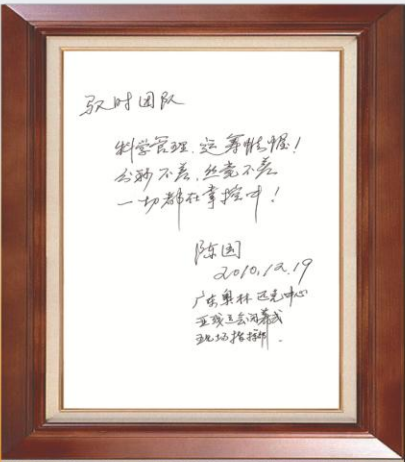 驭时团队
科学管理,运筹帷幄!
分秒不差,丝毫不差
一切都在掌控中!
陈国
2010.12.19
广东奥林匹克中心
亚残运会闭幕式
现场指挥部.